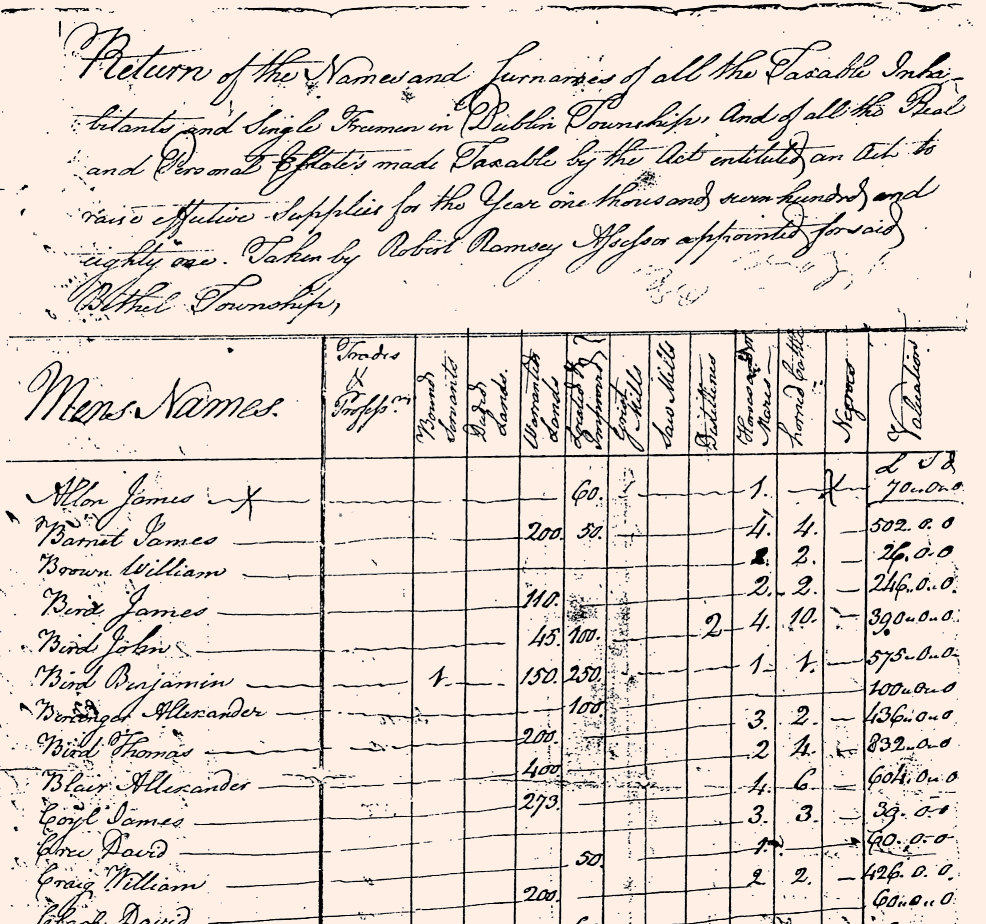 Return of the Names and Surnames of all the Taxable Inha-
bitants and Single Freemen in Dublin Township, And of all the Real
and Personal Estates made Taxable by the Act entituled an Act to
raise effective Supplies for the Year one thousand seven hundred and
eighty one. Taken by Robert Ramsey Assessor appointed for said
Bethel Township,
Mens Names. Trades & Profess.ns Bound Servants Deeded Lands. Warranted Lands Located & Improved Grist Mills Saw Mills Distilleries Horses and Mares horned Cattle Negroes Valuations
£ S d
Allon James 60. 1. 70..0..0
Barnet James 200. 50. 4. 4. 502. 0. 0
Brown William 2. 2. 26. 0. 0
Bird James 110. 2. 2. 246. 0. 0.
Bird John 45 100. 2 4. 10. 390..0..0
Bird Benjamin 1. 150. 250. 1. 1. 575..0..0
Alexander 100 100..0..0
Bird Thomas 200. 3. 2. 436..0..0
Blair Allexander 400. 2 4. 832..0..0
Coyl James 273. 4. 6. 604. 0.. 0
Cree David 3. 3. 39. 0. 0
Craig William 50. 1. 60. 0. 0
David 200. 2 2. 426. 0. 0.
60..0..0